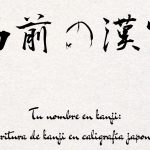 前の漢
Tu nombre en kanji:
ritura de kanji en caligrafía japon